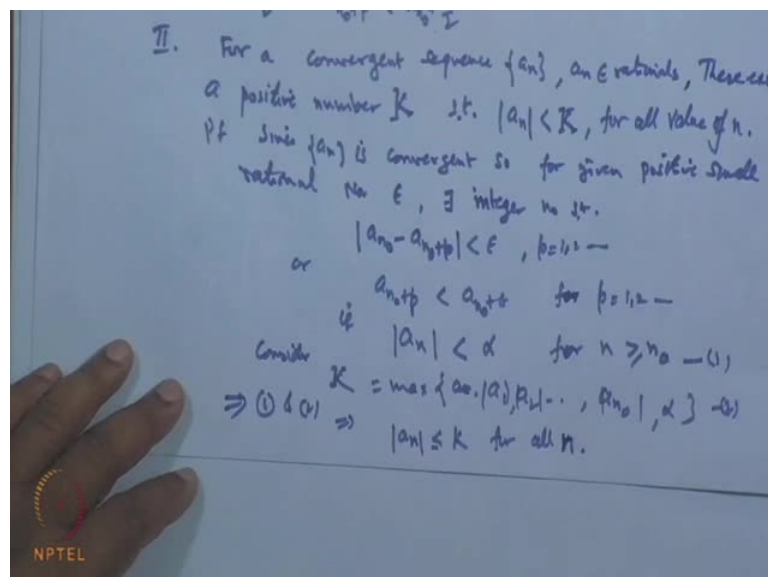 II. For a convergent sequence {an}, an ∈ rationals, There
a positive number K s.t. |an| < K, for all value of n.
Pf Since {an} is convergent so for given positive small
rational No ε, ∃ integer n₀ s.t.
|a_{n₀} - a_{n₀+p}| < ε , p=1,2 —
or
a_{n₀+p} < for p=1,2 —
if |an| < α for n ≥ n₀ —(1)
Consider K = max { |a₁|, |a₂| - - , |a_{n₀}|, α } -(2)
⇒ (1) & (2) ⇒
|an| ≤ K for all n.
NPTEL